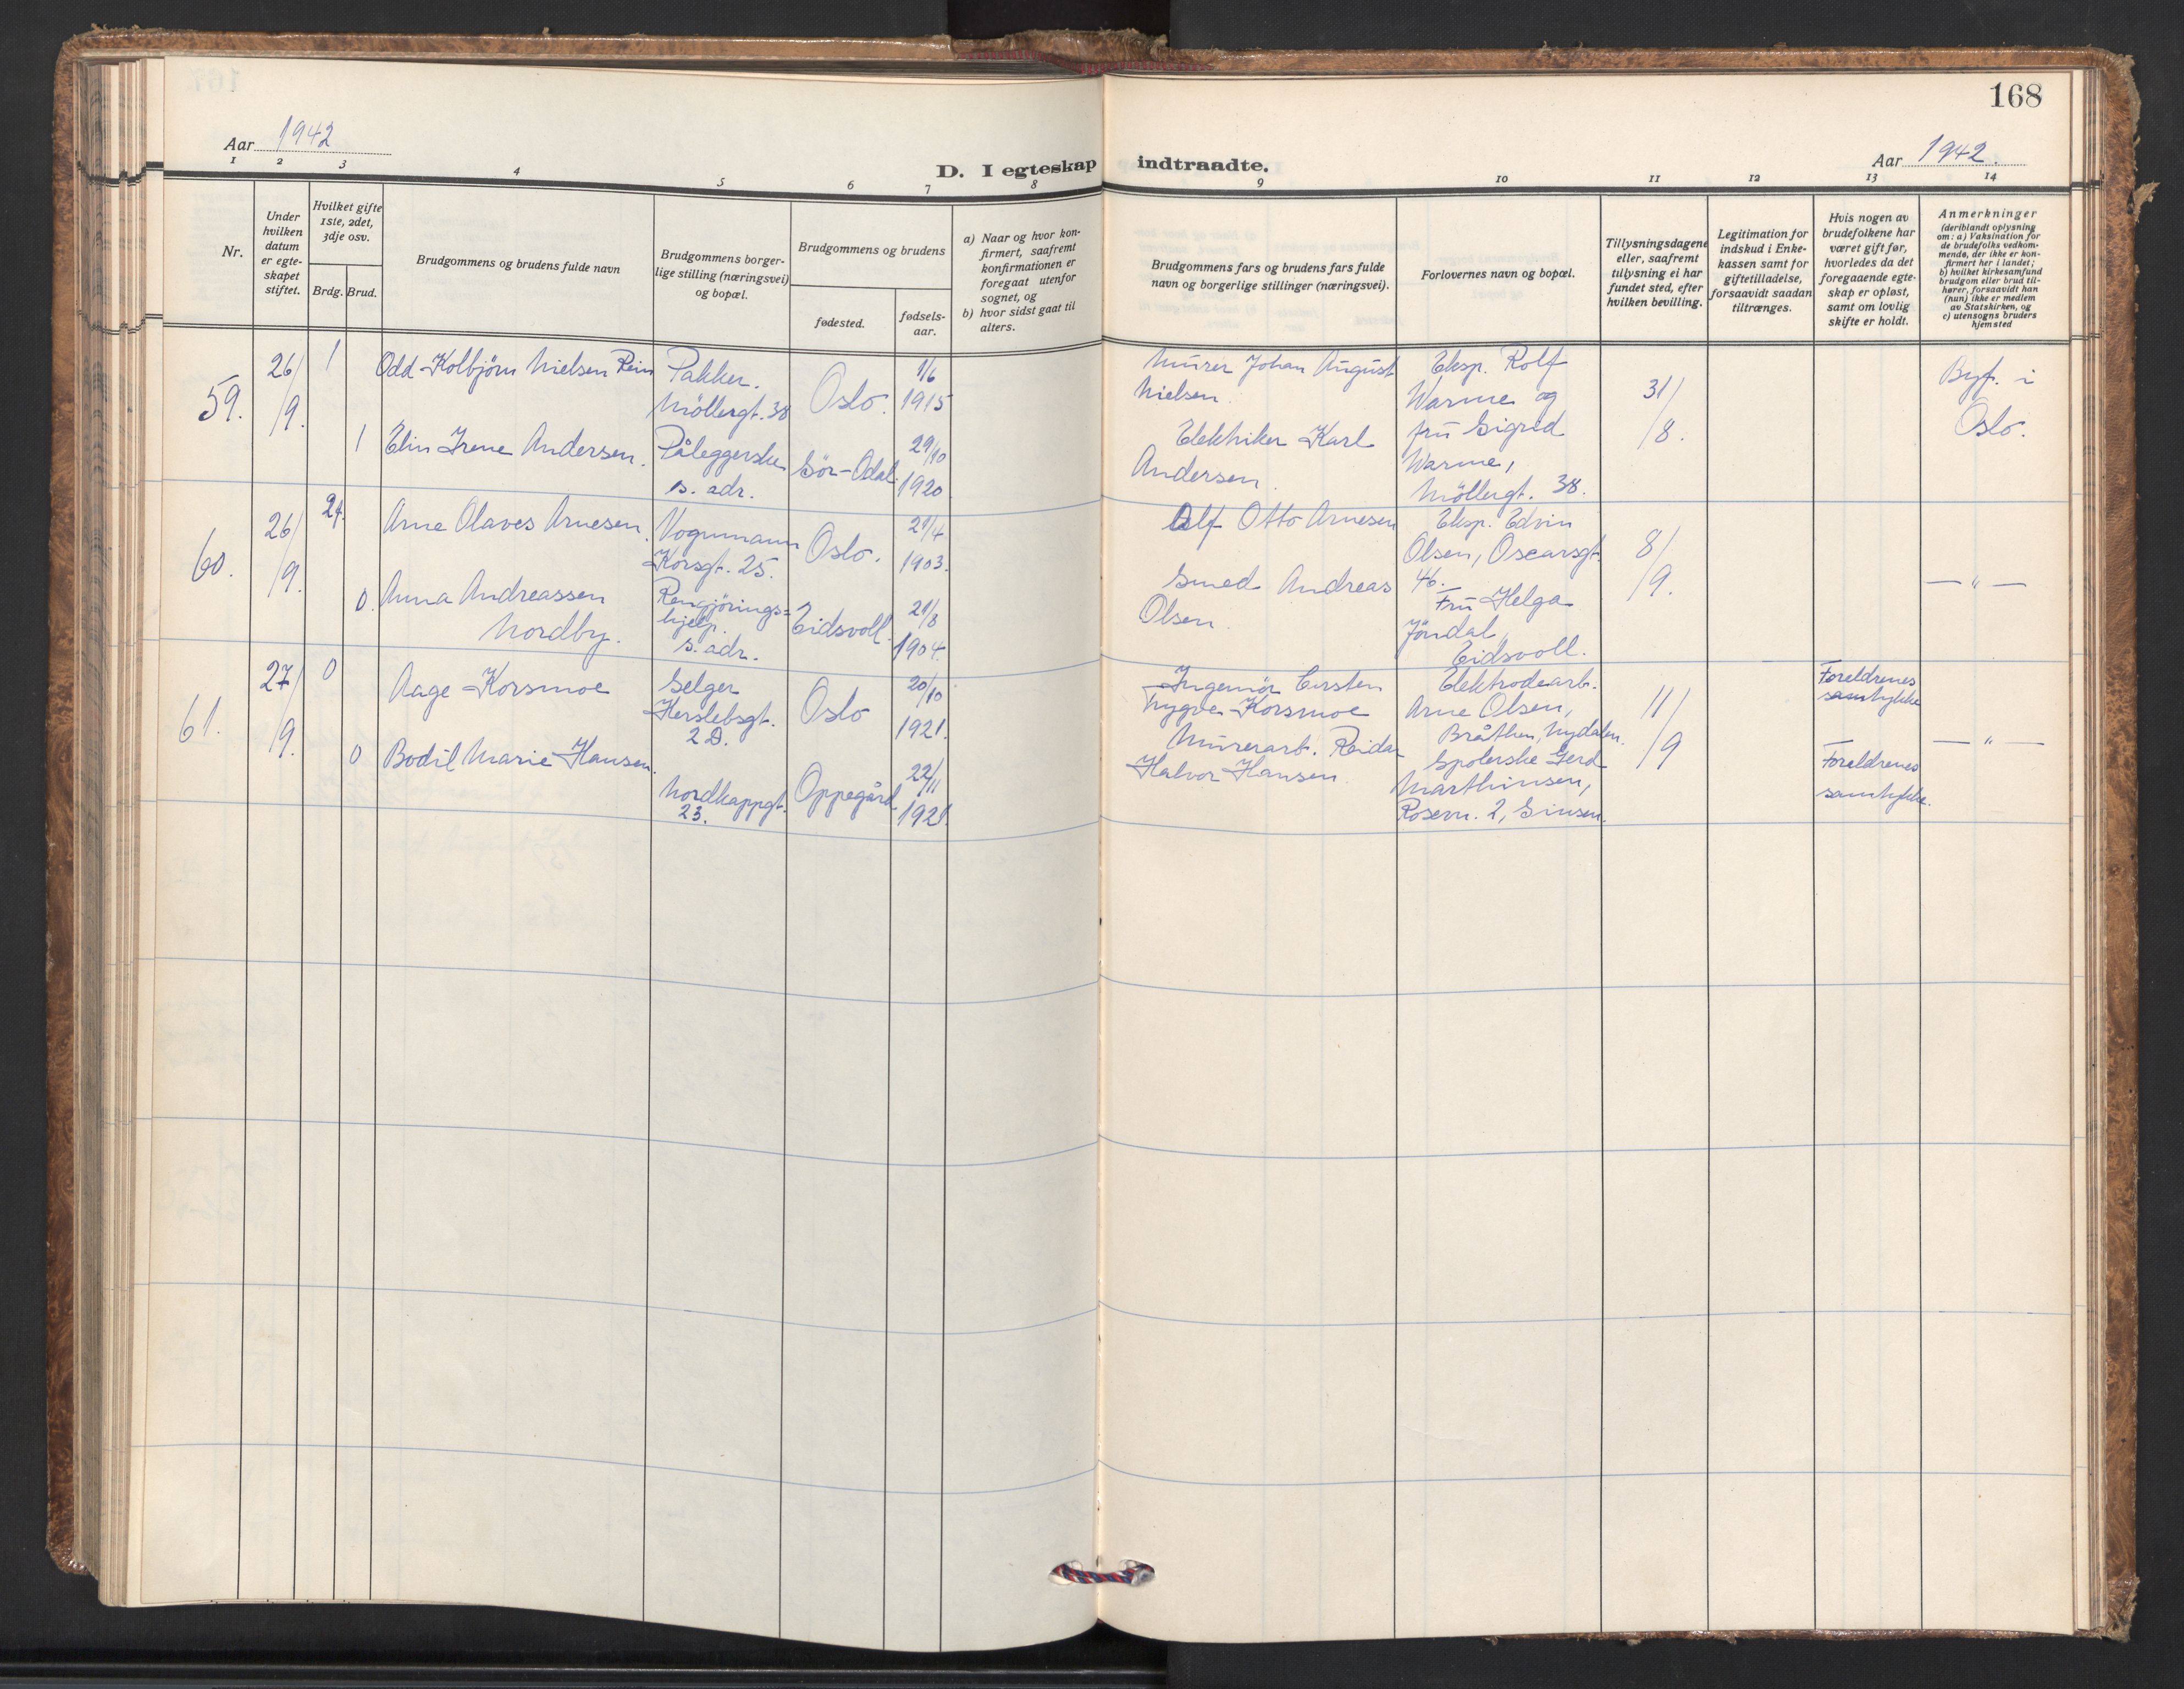 168
Aar 1942
Aar 1942.
D. I egteskap indtraadte.
1 2 3 4 5 6 7 8 9 10 11 12 13 14
Nr.
Under
hvilken
datum
er egte-
skapet
stiftet.
Hvilket gifte
1ste, 2det,
3dje osv.
Brdg. Brud.
Brudgommens og brudens fulde navn
Brudgommens borger-
lige stilling (næringsvei)
og bopæl.
Brudgommens og brudens
fødested.
fødsels-
aar.
a) Naar og hvor kon-
firmert, saafremt
konfirmationen er
foregaat utenfor
sognet, og
b) hvor sidst gaat til
alters.
Brudgommens fars og brudens fars fulde
navn og borgerlige stillinger (næringsvei).
Forlovernes navn og bopæl.
Tillysningsdagene
eller, saafremt
tillysning ei har
fundet sted, efter
hvilken bevilling.
Legitimation for
indskud i Enke-
kassen samt for
giftetilladelse,
forsaavidt saadan
tiltrænges.
Hvis nogen av
brudefolkene har
været gift før,
hvorledes da det
foregaaende egte-
skap er opløst,
samt om lovlig
skifte er holdt.
Anmerkninger
(deriblandt oplysning
om: a) Vaksination for
de brudefolks vedkom-
mende, der ikke er kon-
firmert her i landet;
b) hvilket kirkesamfund
brudgom eller brud til-
hører, forsaavidt han
(hun) ikke er medlem
av Statskirken, og
c) utensogns bruders
hjemsted
59.
26/9.
1
Odd Kolbjörn Nielsen Rein
Pakker.
Möllergt. 38
Oslo.
1/6
1915
Murer Johan August
Nielsen.
Eksp. Rolf
Warme og
fru Sigrid
Warme,
Möllergt. 38.
31/8.
Byf. i
Oslo.
1
Elin Irene Andersen.
Påleggerske
s. adr.
Sör-Odal.
29/10
1920
Elektriker Karl
Andersen.
60.
26/9.
Arne Olaves Arnesen.
Vognmann
Korsgt. 25.
Oslo.
21/4
1903.
Alf Otto Arnesen
Eksp. Edvin
Olsen, Oscarsgt.
46.
Fru Helga
Jöndal,
Eidsvoll.
8/9.
— " —
0.
Anna Andreassen
Nordby.
Rengjörings=
hjelp.
s. adr.
Eidsvoll.
21/8
1904.
Smed Andreas
Olsen.
61.
27/9.
0
Aage Korsmoe
Selger
Herslebsgt.
2 D.
Oslo
20/10
1921.
Ingeniör Carsten
Trygve Korsmoe
Elektrodearb.
Arne Olsen,
Bråthen, Nydalen.
Spolerske Gerd
Marthinsen,
Rosenv. 2, Sinsen.
11/9
Foreldrenes
samtykke
— " —
0
Bodil Marie Hansen.
Nordkappgt.
23.
Oppegård
22/11
1921.
Murerarb. Reidar
Halvor Hansen.
Foreldrenes
samtykke.